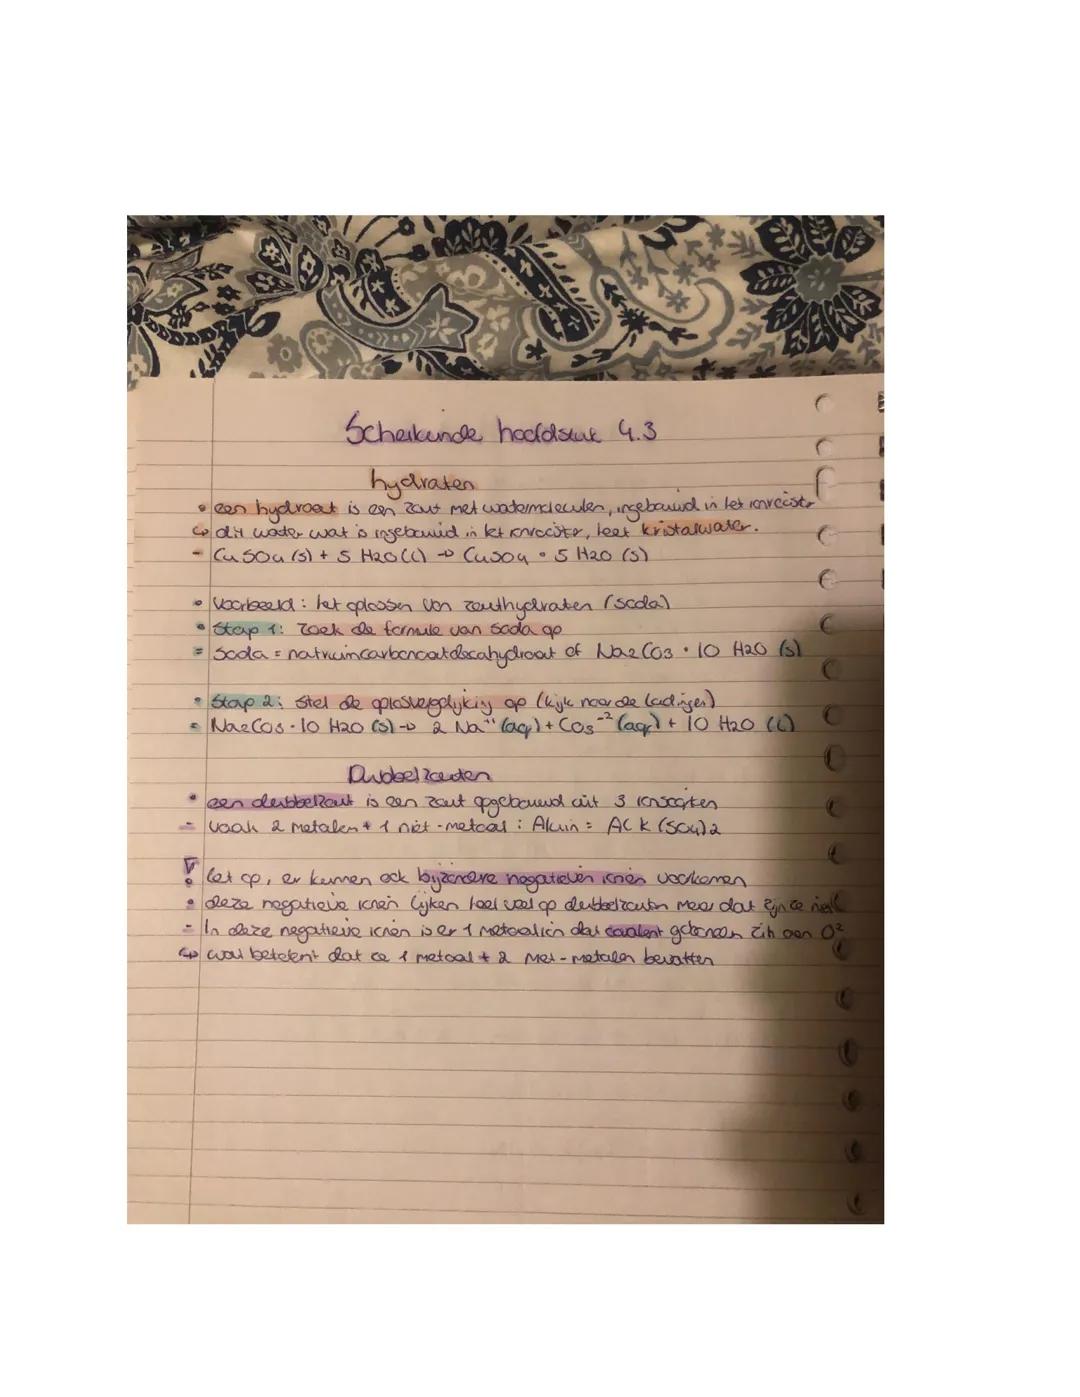 Scheikunde hoofdstuk 4.3
hydraten
• een hydraat is een zout met watermoleculen, ingebouwd in het ionrooster
↳ dit water wat is ingebouwd in het ionrooster, heet kristalwater.
- CuSO4 (s) + 5 H2O (l) → CuSO4 • 5 H2O (s)
• Voorbeeld: het oplossen van zouthydraten (soda)
• Stap 1: zoek de formule van soda op
= Soda = natriumcarbonaatdecahydraat of Na2CO3 • 10 H2O (s)
• Stap 2: stel de oplosvergelijking op (kijk naar de ladingen)
= Na2CO3 • 10 H2O (s) → 2 Na⁺ (aq) + CO3⁻² (aq) + 10 H2O (l)
Dubbelzouten
• een dubbelzout is een zout opgebouwd uit 3 ionsoorten
- vaak 2 metalen + 1 niet-metaal : Aluin = AlK(SO4)2
! let op, er kunnen ook bijzondere negatieven ionen voorkomen
• deze negatieve ionen lijken heel veel op dubbelzouten maar dat zijn ze niet
- In deze negatieve ionen is er 1 metaalion dat covalent gebonden zih aan O²
↳ wat betekent dat ze 1 metaal + 2 niet-metalen bevatten